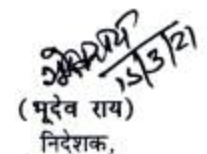 15/3/21
(भूदेव राय)
निदेशक,